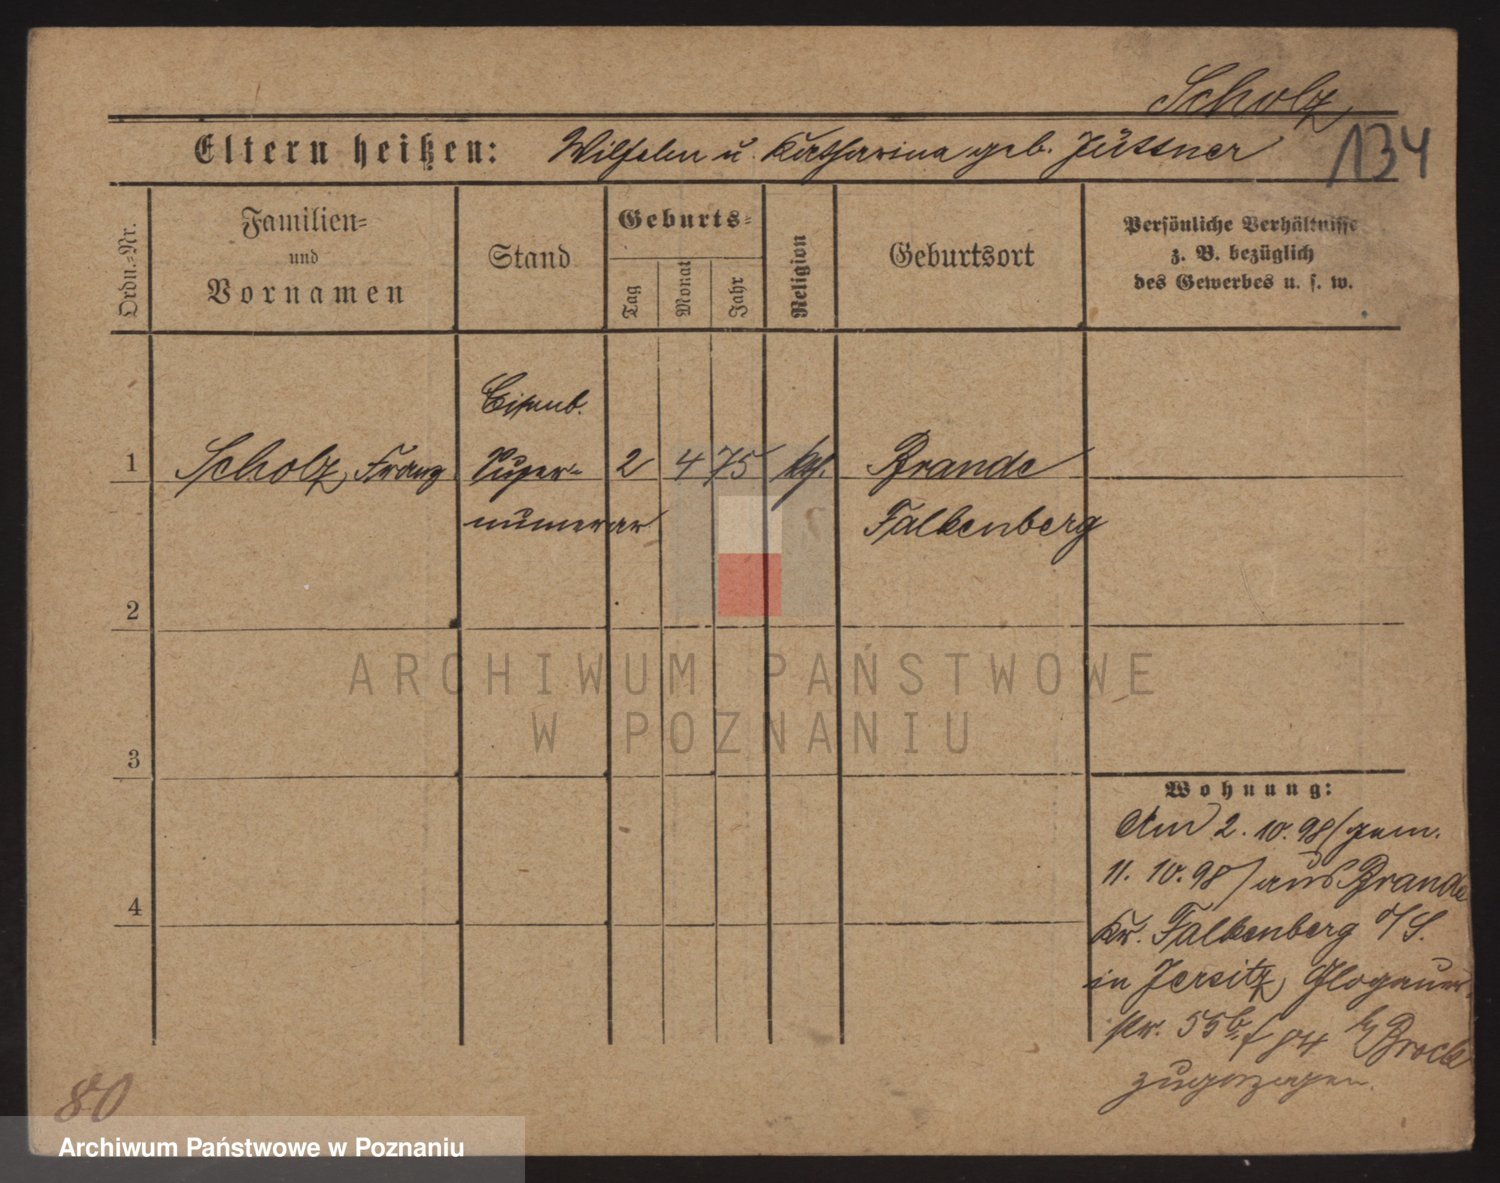 Scholz
Eltern heißen: Wilhelm u. Katharina geb. Jüttner
134
Ordn.-Nr.
Familien- und Vornamen
Stand
Geburts-
Tag
Monat
Jahr
Religion
Geburtsort
Persönliche Verhältnisse
z. B. bezüglich
des Gewerbes u. s. w.
Eisenb.
1 Scholz, Franz Super- 2 4 75 kth. Brande
numerar Falkenberg
2
ARCHIWUM PAŃSTWOWE
W POZNANIU
3
Wohnung:
Am 2. 10. 98 / gem.
11. 10. 98 / aus Brande
4
Kr. Falkenberg O/S.
in Jersitz, Glogauer-
str. 55b f 84 b/ Brock
zugezogen.
80
Archiwum Państwowe w Poznaniu